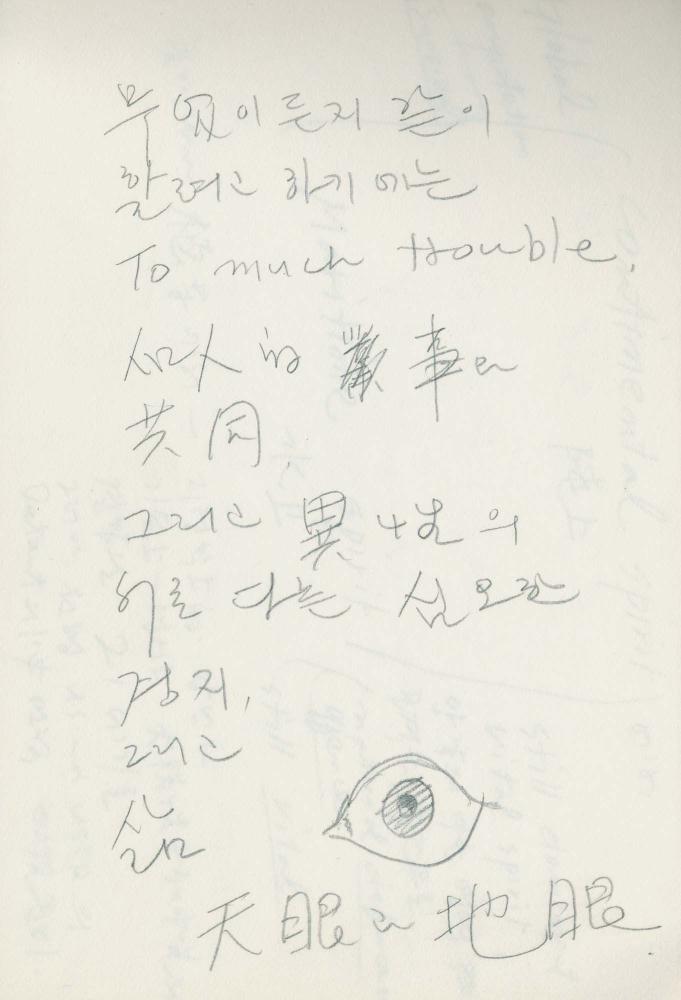 무엇이든지 같이
할려고 하기에는
To much trouble.
人的 事와
共同.
그리고 異性의
서로 다른 심오한
경지,
그리고
삶
天眼과 地眼